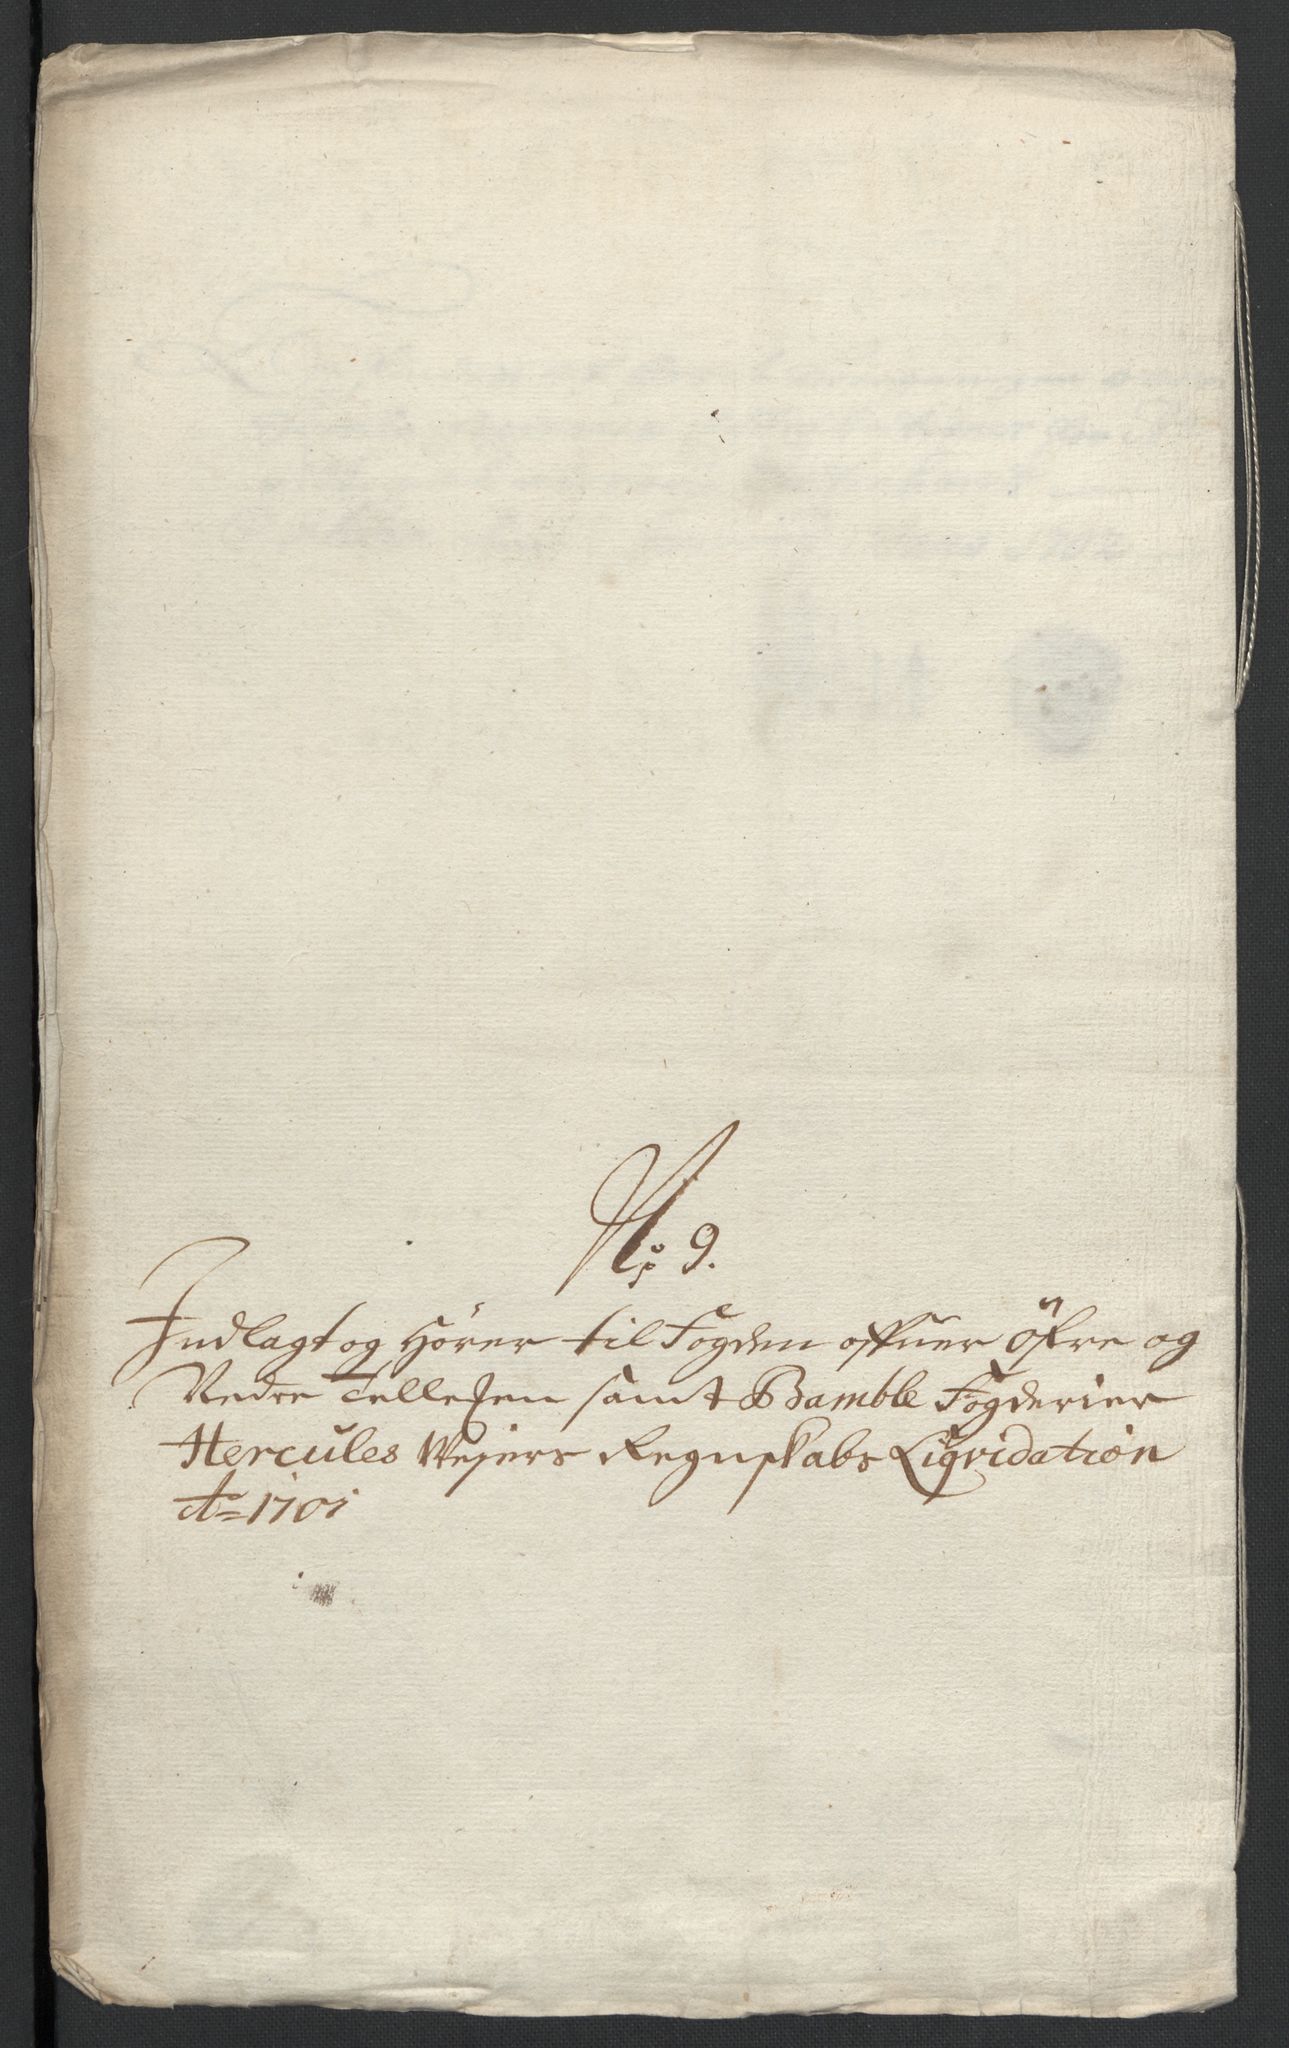 No 9.
Indlagt og Hörer til Fogden offuer öfre og
Nedre Tellesen samt Bamble Fogderier
Hercules Wejers Regnskabs Liqvidation
Ao 1701